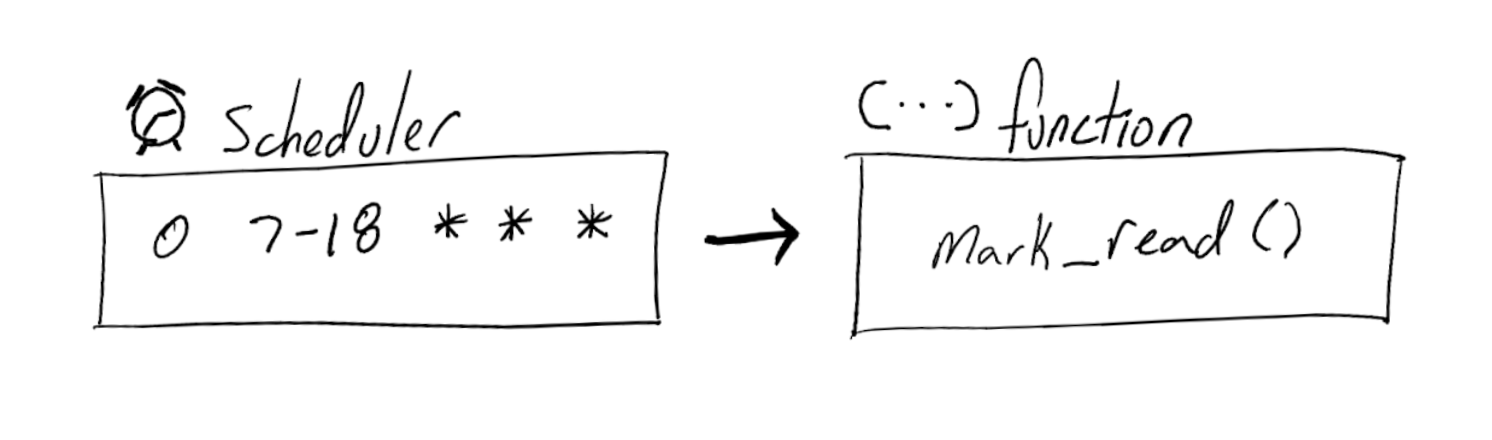 Scheduler
0 7-18 * * *
(...) function
mark_read()